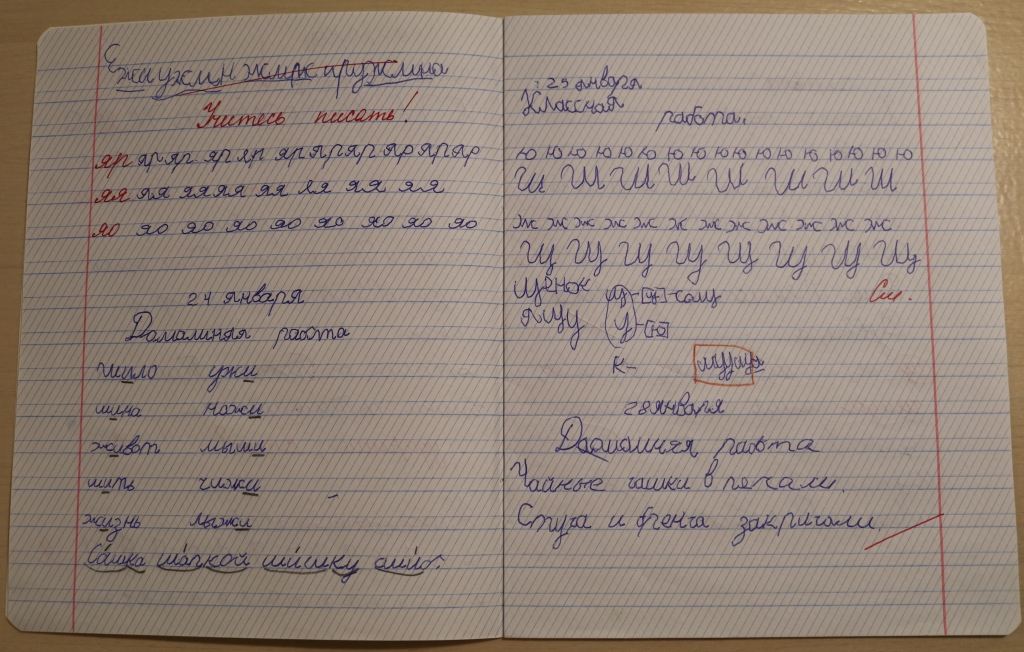 Учитесь писать!
яр яр яр яр яр яр яр яр яр яр яр
яя яя яя яя яя яя яя яя яя
яо яо яо яо яо яо яо яо яо
24 января
Домашняя работа
шило ужи
шина ножи
живот мыши
шить
жизнь лыжи
шишку сшил.
25 января
Классная
работа.
ю ю ю ю ю ю ю ю ю ю ю ю ю ю ю ю ю ю
Ш Ш Ш Ш Ш Ш Ш Ш
ж ж ж ж ж ж ж ж ж ж ж ж ж
Щ Щ Щ Щ Щ Щ Щ Щ
щенок
ищу
См.
к-
28 января
Домашняя работа
Чайные чашки в печали.
Стуча и бренча закричали.